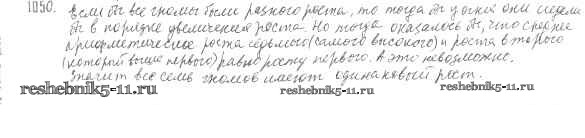 1050. Если бы все гномы были разного роста, то тогда бы у окна они сидели
бы в порядке увеличения роста. Но тогда оказалось бы, что среднее
арифметическое роста седьмого (самого высокого) и роста второго
(который выше первого) равно росту первого. А это невозможно.
Значит все семь гномов имеют одинаковый рост.
reshebnik5-11.ru reshebnik5-11.ru